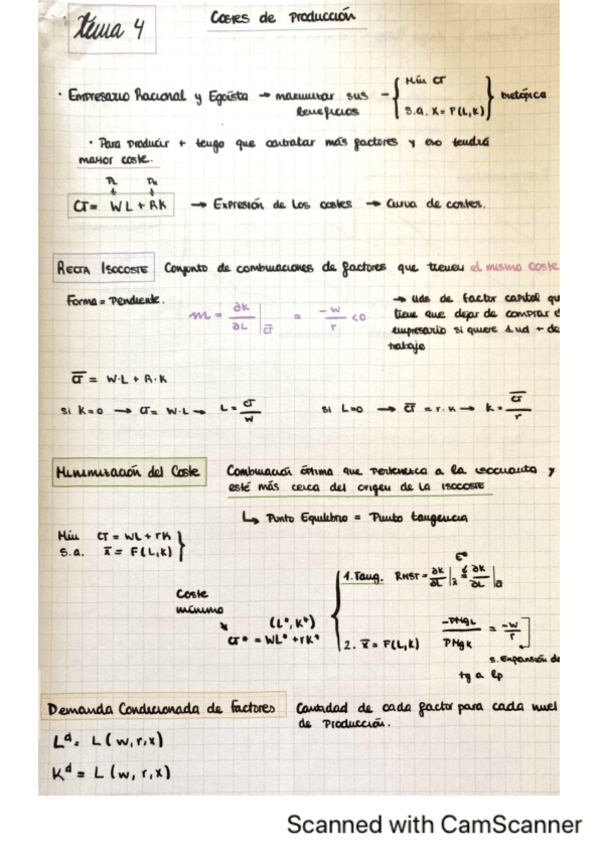 Tema 4
Costes de Producción
· Empresario Racional y Egoísta → maximizar sus Beneficios - { Mín CT
S.a. X = F(L,K) } biutópica
· Para producir + tengo que contratar más factores y eso tendrá
mayor coste.
PL PK
↓ ↓
CT = WL + RK → Expresión de los costes → Curva de costes.
RECTA ISOCOSTE Conjunto de combinaciones de factores que tienen el mismo coste
Forma = Pendiente.
m = ∂K/∂L | CT = -w/r < 0
→ Uds de factor capital qu
tiene que dejar de comprar e
empresario si quiere 1 ud + de
trabajo
CT = W·L + R·K
Si K=0 → CT = W·L → L = CT/w
Si L=0 → CT = r·K → K = CT/r
Minimización del Coste Combinación óptima que pertenezca a la isocuanta y
esté más cerca del origen de la ISOCOSTE
↳ Punto Equilibrio = Punto tangencia
Mín CT = WL + rK
S.a. x̄ = F(L,K) }
Coste
mínimo
(L*, K*)
CT* = WL* + rK*
1. Tang. RMST = ∂K/∂L | x̄ = ∂K/∂L | CT
E*
2. x̄ = F(L,K)
-PMgL/PMgK = -w/r ]
s. Expansión de
tg a lp
Demanda Condicionada de Factores Cantidad de cada factor para cada nivel
de Producción.
L^d = L(w,r,x)
K^d = L(w,r,x)
Scanned with CamScanner